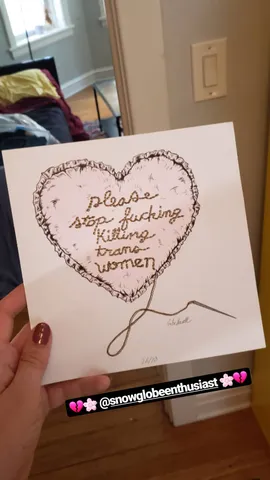 please
stop fucking
killing
trans
women
💔🌸 @snowglobeenthusiast 🌸💔